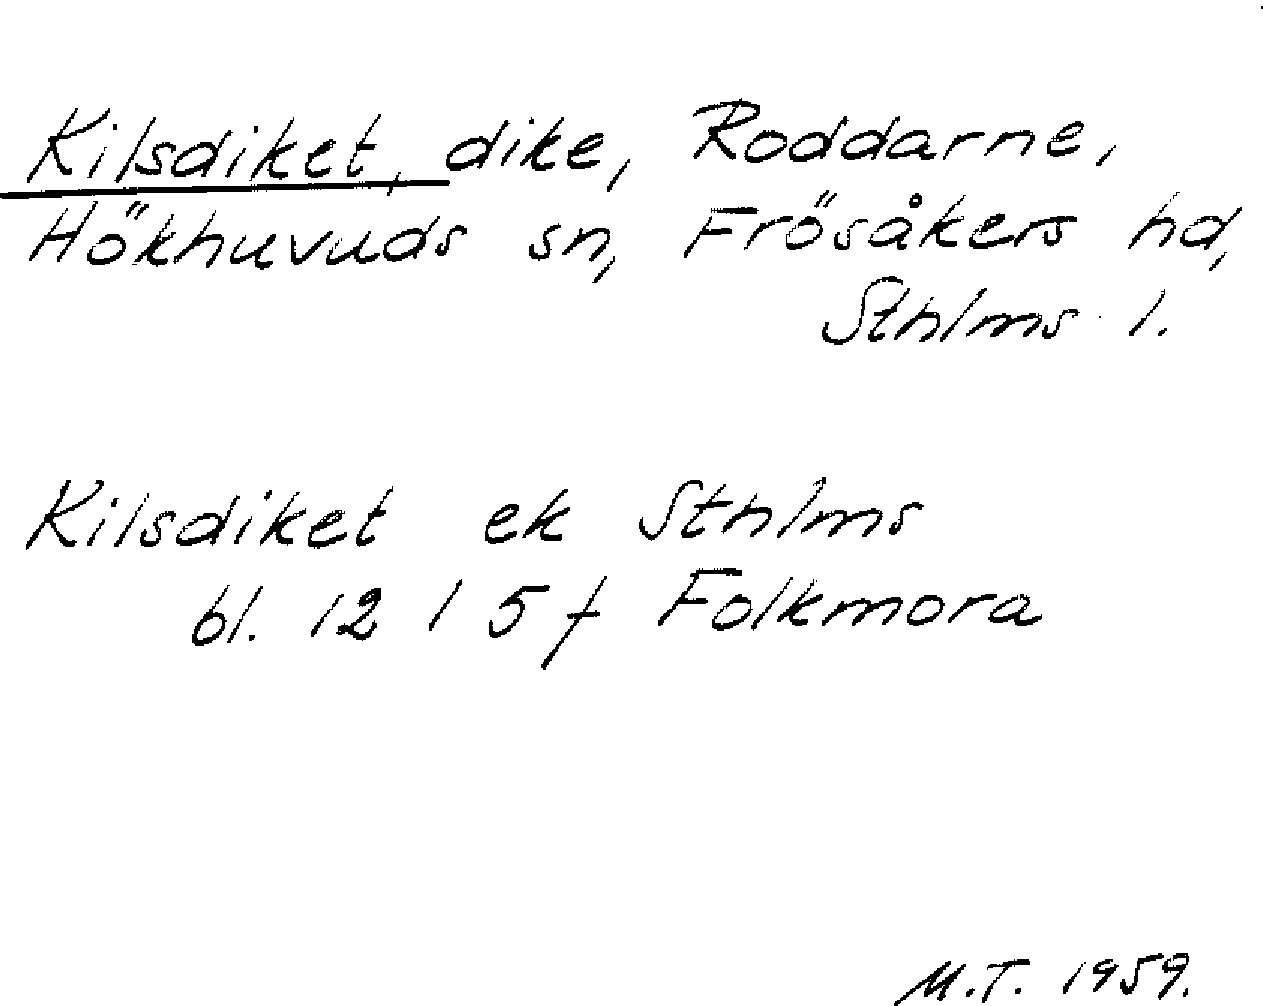 Kilsdiket, dike, Roddarne,
Hökhuvuds sn, Frösåkers hd,
Sthlms l.
Kilsdiket ek Sthlms
bl. 12 I 5 f Folkmora
M.T. 1959.